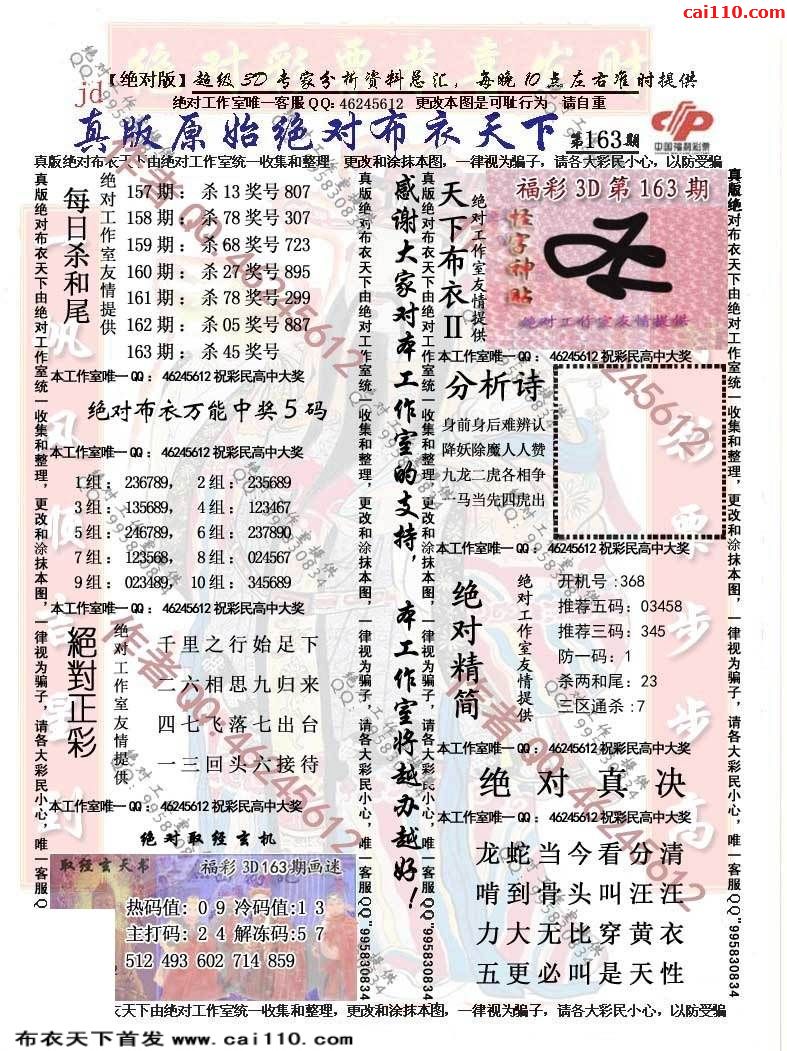 cai110.com
【绝对版】超级3D专家分析资料总汇，每晚10点左右准时提供
jd
绝对工作室唯一客服QQ: 46245612 更改本图是可耻行为 请自重
真版原始绝对布衣天下 第163期
中国福利彩票
真版绝对布衣天下由绝对工作室统一收集和整理，更改和涂抹本图，一律视为骗子，请各大彩民小心，以防受骗
真版绝对布衣天下由绝对工作室统一收集和整理，更改和涂抹本图，一律视为骗子，请各大彩民小心，唯一客服QQ
每日杀和尾
绝对工作室友情提供
157期：杀13奖号807
158期：杀78奖号307
159期：杀68奖号723
160期：杀27奖号895
161期：杀78奖号299
162期：杀05奖号887
163期：杀45奖号
本工作室唯一QQ：46245612祝彩民高中大奖
绝对布衣万能中奖5码
本工作室唯一QQ：46245612祝彩民高中大奖
1组：236789， 2组：235689
3组：135689， 4组：123467
5组：246789， 6组：237890
7组：123568， 8组：024567
9组：023489， 10组：345689
本工作室唯一QQ：46245612祝彩民高中大奖
絕對正彩
绝对工作室友情提供
千里之行始足下
二六相思九归来
四七飞落七出台
一三回头六接待
本工作室唯一QQ：46245612祝彩民高中大奖
绝对取经玄机
取经玄天书 福彩3D163期画迷
热码值：0 9 冷码值:1 3
主打码：2 4 解冻码:5 7
512 493 602 714 859
真版绝对布衣天下由绝对工作室统一收集和整理，更改和涂抹本图，一律视为骗子，请各大彩民小心，唯一客服QQ"995830834
感谢大家对本工作室的支持，本工作室将越办越好！
真版绝对布衣天下由绝对工作室统一收集和整理，更改和涂抹本图，一律视为骗子，请各大彩民小心，唯一客服QQ"995830834
天下布衣II
绝对工作室友情提供
福彩3D第163期
怪字神贴
绝对工作室友情提供
本工作室唯一QQ：46245612祝彩民高中大奖
分析诗
身前身后难辨认
降妖除魔人人赞
九龙二虎各相争
一马当先四虎出
本工作室唯一QQ：46245612祝彩民高中大奖
绝对精简
绝对工作室友情提供
开机号:368
推荐五码:03458
推荐三码:345
防一码:1
杀两和尾:23
三区通杀:7
本工作室唯一QQ：46245612祝彩民高中大奖
绝对真决
本工作室唯一QQ：46245612祝彩民高中大奖
龙蛇当今看分清
啃到骨头叫汪汪
力大无比穿黄衣
五更必叫是天性
真版绝对布衣天下由绝对工作室统一收集和整理，更改和涂抹本图，一律视为骗子，请各大彩民小心，唯一客服QQ"995830834
衣天下由绝对工作室统一收集和整理，更改和涂抹本图，一律视为骗子，请各大彩民小心，以防受骗
布衣天下首发 www.cai110.com